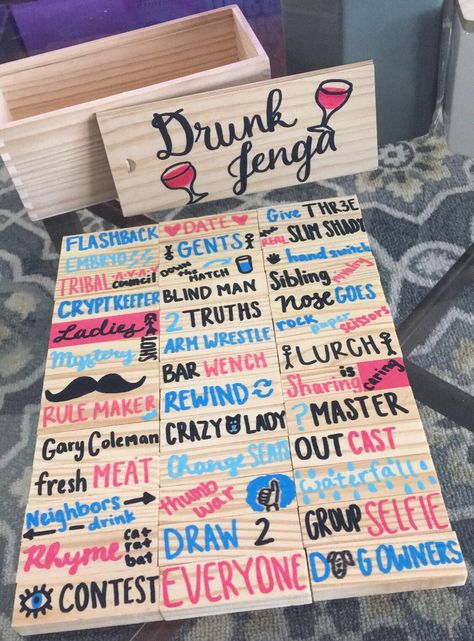 Drunk
Jenga
FLASHBACK
EMBRYO
TRIBAL
council
CRYPTKEEPER
Ladies
Mystery
RULE MAKER
Gary Coleman
fresh MEAT
Neighbors
drink
Rhyme cat
rat
bat
CONTEST
DATE
GENTS
DOWN the HATCH
BLIND MAN
2 TRUTHS
ARM WRESTLE
BAR WENCH
REWIND
CRAZY LADY
Change SEATS
thumb
war
DRAW 2
EVERYONE
Give THR3E
the REAL SLIM SHADY
hand switch
Sibling rivalry
Nose GOES
rock paper scissors
LURCH
Sharing is caring
? MASTER
OUT CAST
waterfall
GROUP SELFIE
DOG OWNERS